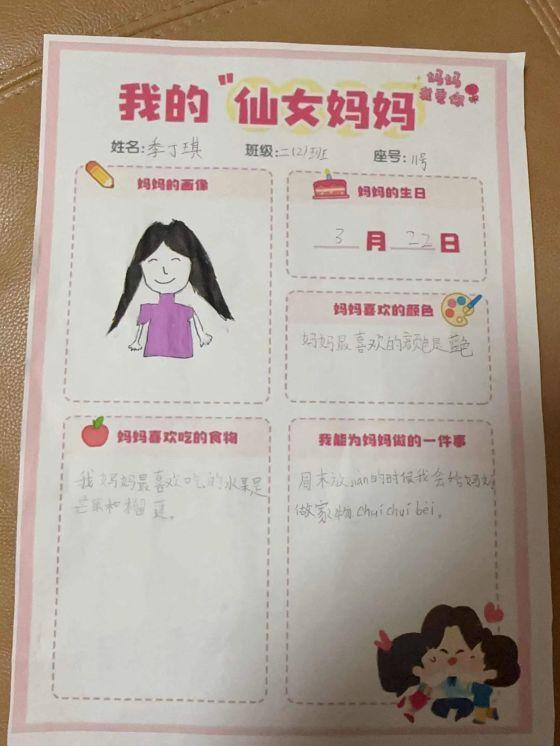 妈妈
我爱你
我的"仙女妈妈
姓名:季丁琪 班级:二(2)班 座号:11号
妈妈的画像
妈妈的生日
3月22日
妈妈喜欢的颜色
妈妈最喜欢的颜色是蓝色
妈妈喜欢吃的食物
我妈妈最喜欢吃的水果是
芒果和榴莲。
我能为妈妈做的一件事
周末放jian的时候我会给妈妈
做家物chuichuibei.